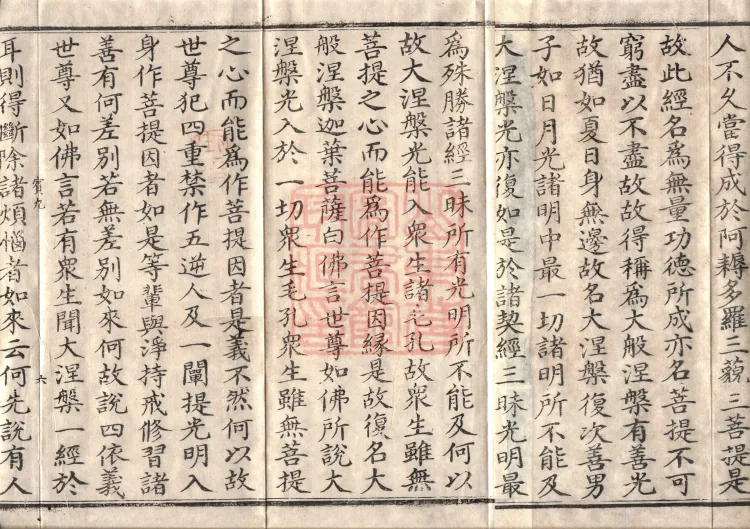 人不久當得成於阿耨多羅三藐三菩提是
故此經名爲無量功德所成亦名菩提不可
窮盡以不盡故故得稱爲大般涅槃有善光
故猶如夏日身無邊故名大涅槃復次善男
子如日月光諸明中最一切諸明所不能及
大涅槃光亦復如是於諸契經三昧光明最
爲殊勝諸經三昧所有光明所不能及何以
故大涅槃光能入衆生諸毛孔故衆生雖無
菩提之心而能爲作菩提因緣是故復名大
般涅槃迦葉菩薩白佛言世尊如佛所說大
涅槃光入於一切衆生毛孔衆生雖無菩提
之心而能爲作菩提因者是義不然何以故
世尊犯四重禁作五逆人及一闡提光明入
身作菩提因者如是等輩與淨持戒修習諸
善有何差別若無差別如來何故說四依義
世尊又如佛言若有衆生聞大涅槃一經於
耳則得斷除諸煩惱者如來云何先說有人
賓九
六